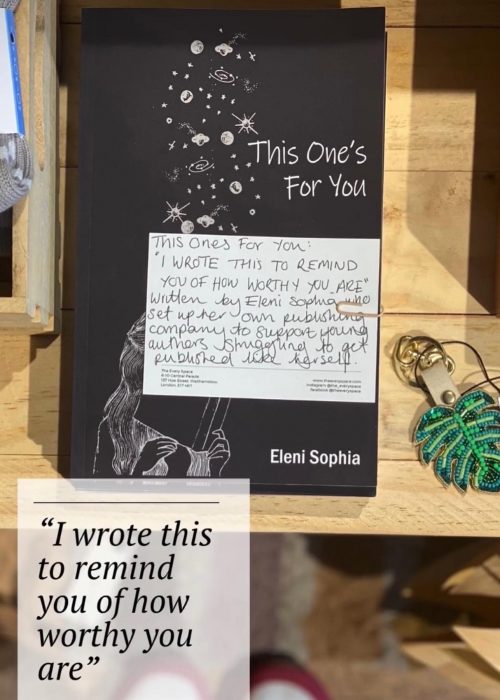 This One's
For You
THIS ONES FOR YOU:
"I WROTE THIS TO REMIND
YOU OF HOW WORTHY YOU ARE"
written by Eleni Sophia who
set up her own publishing
company to support young
authors struggling to get
published like herself
The Every Space
6-10 Central Parade
137 Hoe Street, Walthamstow
London, E17 4RT
www.theeveryspace.com
Instagram @the_everyspace
Facebook @theeveryspace
Eleni Sophia
“I wrote this
to remind
you of how
worthy you
are”